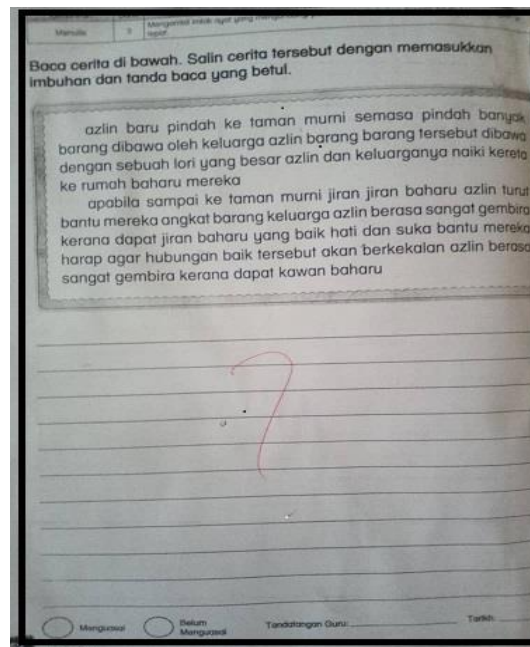 Menulis 3 Mengenal
Baca cerita di bawah. Salin cerita tersebut dengan memasukkan
imbuhan dan tanda baca yang betul.
azlin baru pindah ke taman murni semasa pindah banyak
barang dibawa oleh keluarga azlin barang barang tersebut dibawa
dengan sebuah lori yang besar azlin dan keluarganya naiki kereta
ke rumah baharu mereka
apabila sampai ke taman murni jiran jiran baharu azlin turut
bantu mereka angkat barang keluarga azlin berasa sangat gembira
kerana dapat jiran baharu yang baik hati dan suka bantu mereka
harap agar hubungan baik tersebut akan berkekalan azlin berasa
sangat gembira kerana dapat kawan baharu
?
Menguasai Belum Menguasai Tandatangan Guru: Tarikh: